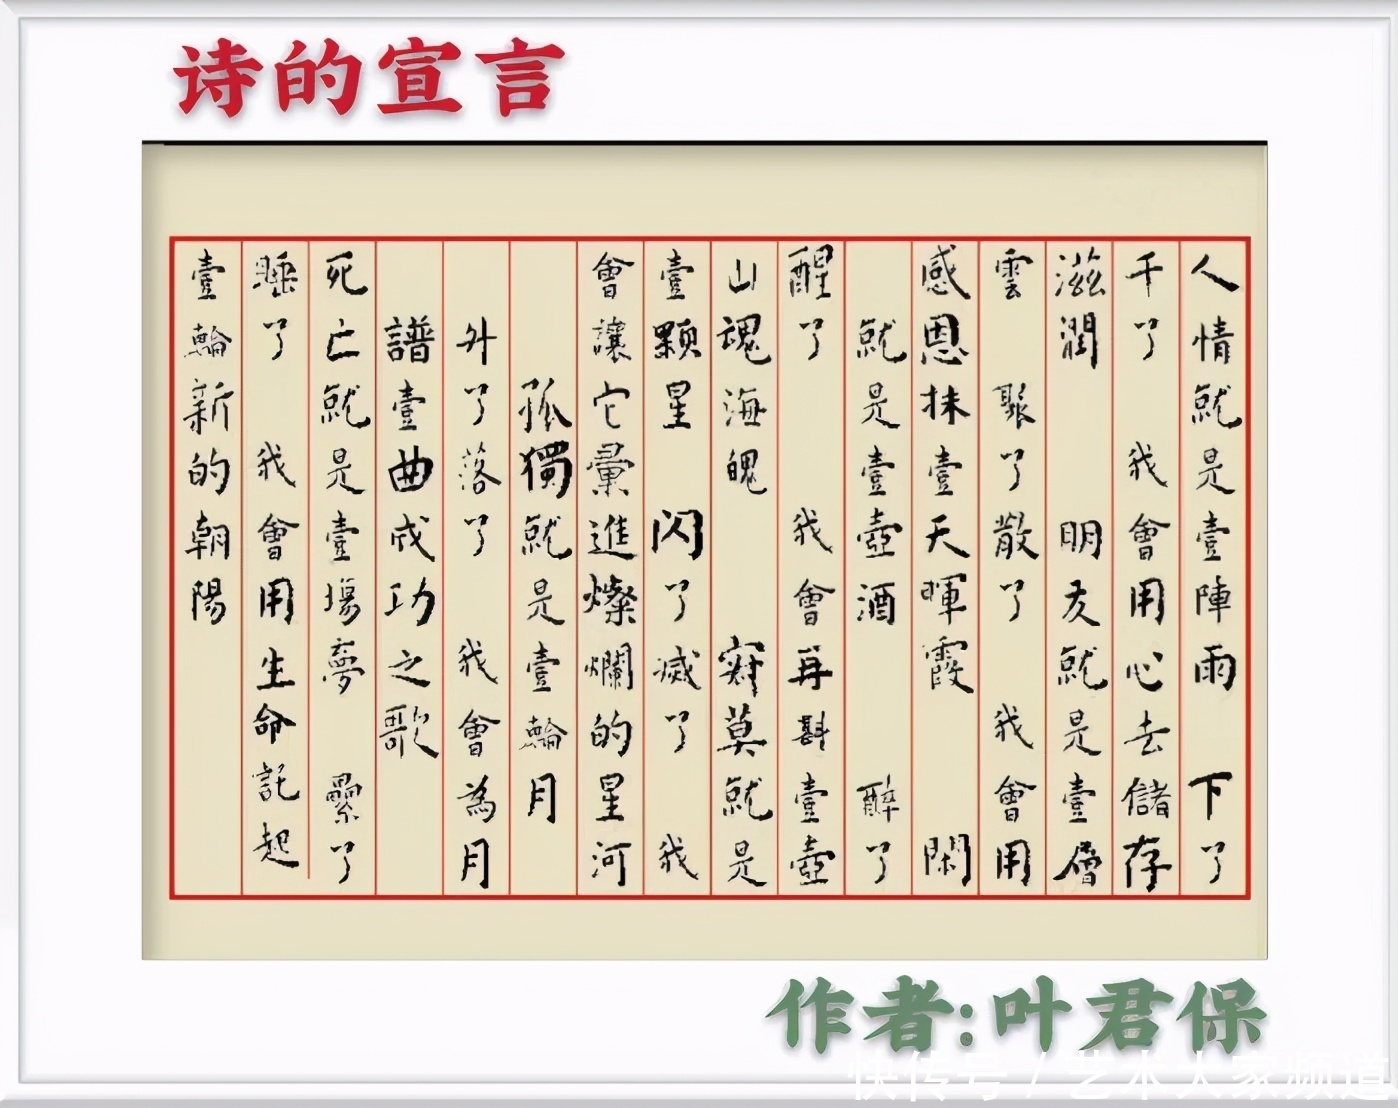 诗的宣言
人情就是壹陣雨 下了
干了 我會用心去儲存
滋潤 明友就是壹層
雲 聚了散了 我會用
感恩抹壹天暉霞 閑
就是壹壺酒 醉了
醒了 我會再斟壹壺
山魂海魄 寂莫就是
壹顆星 閃了滅了 我
會讓它彙進燦爛的星河
孤獨就是壹輪月
升了落了 我會為月
譜壹曲成功之歌
死亡就是壹場夢 纍了
睡了 我會用生命託起
壹輪新的朝陽
作者:叶君保
快传号/艺术大家频道